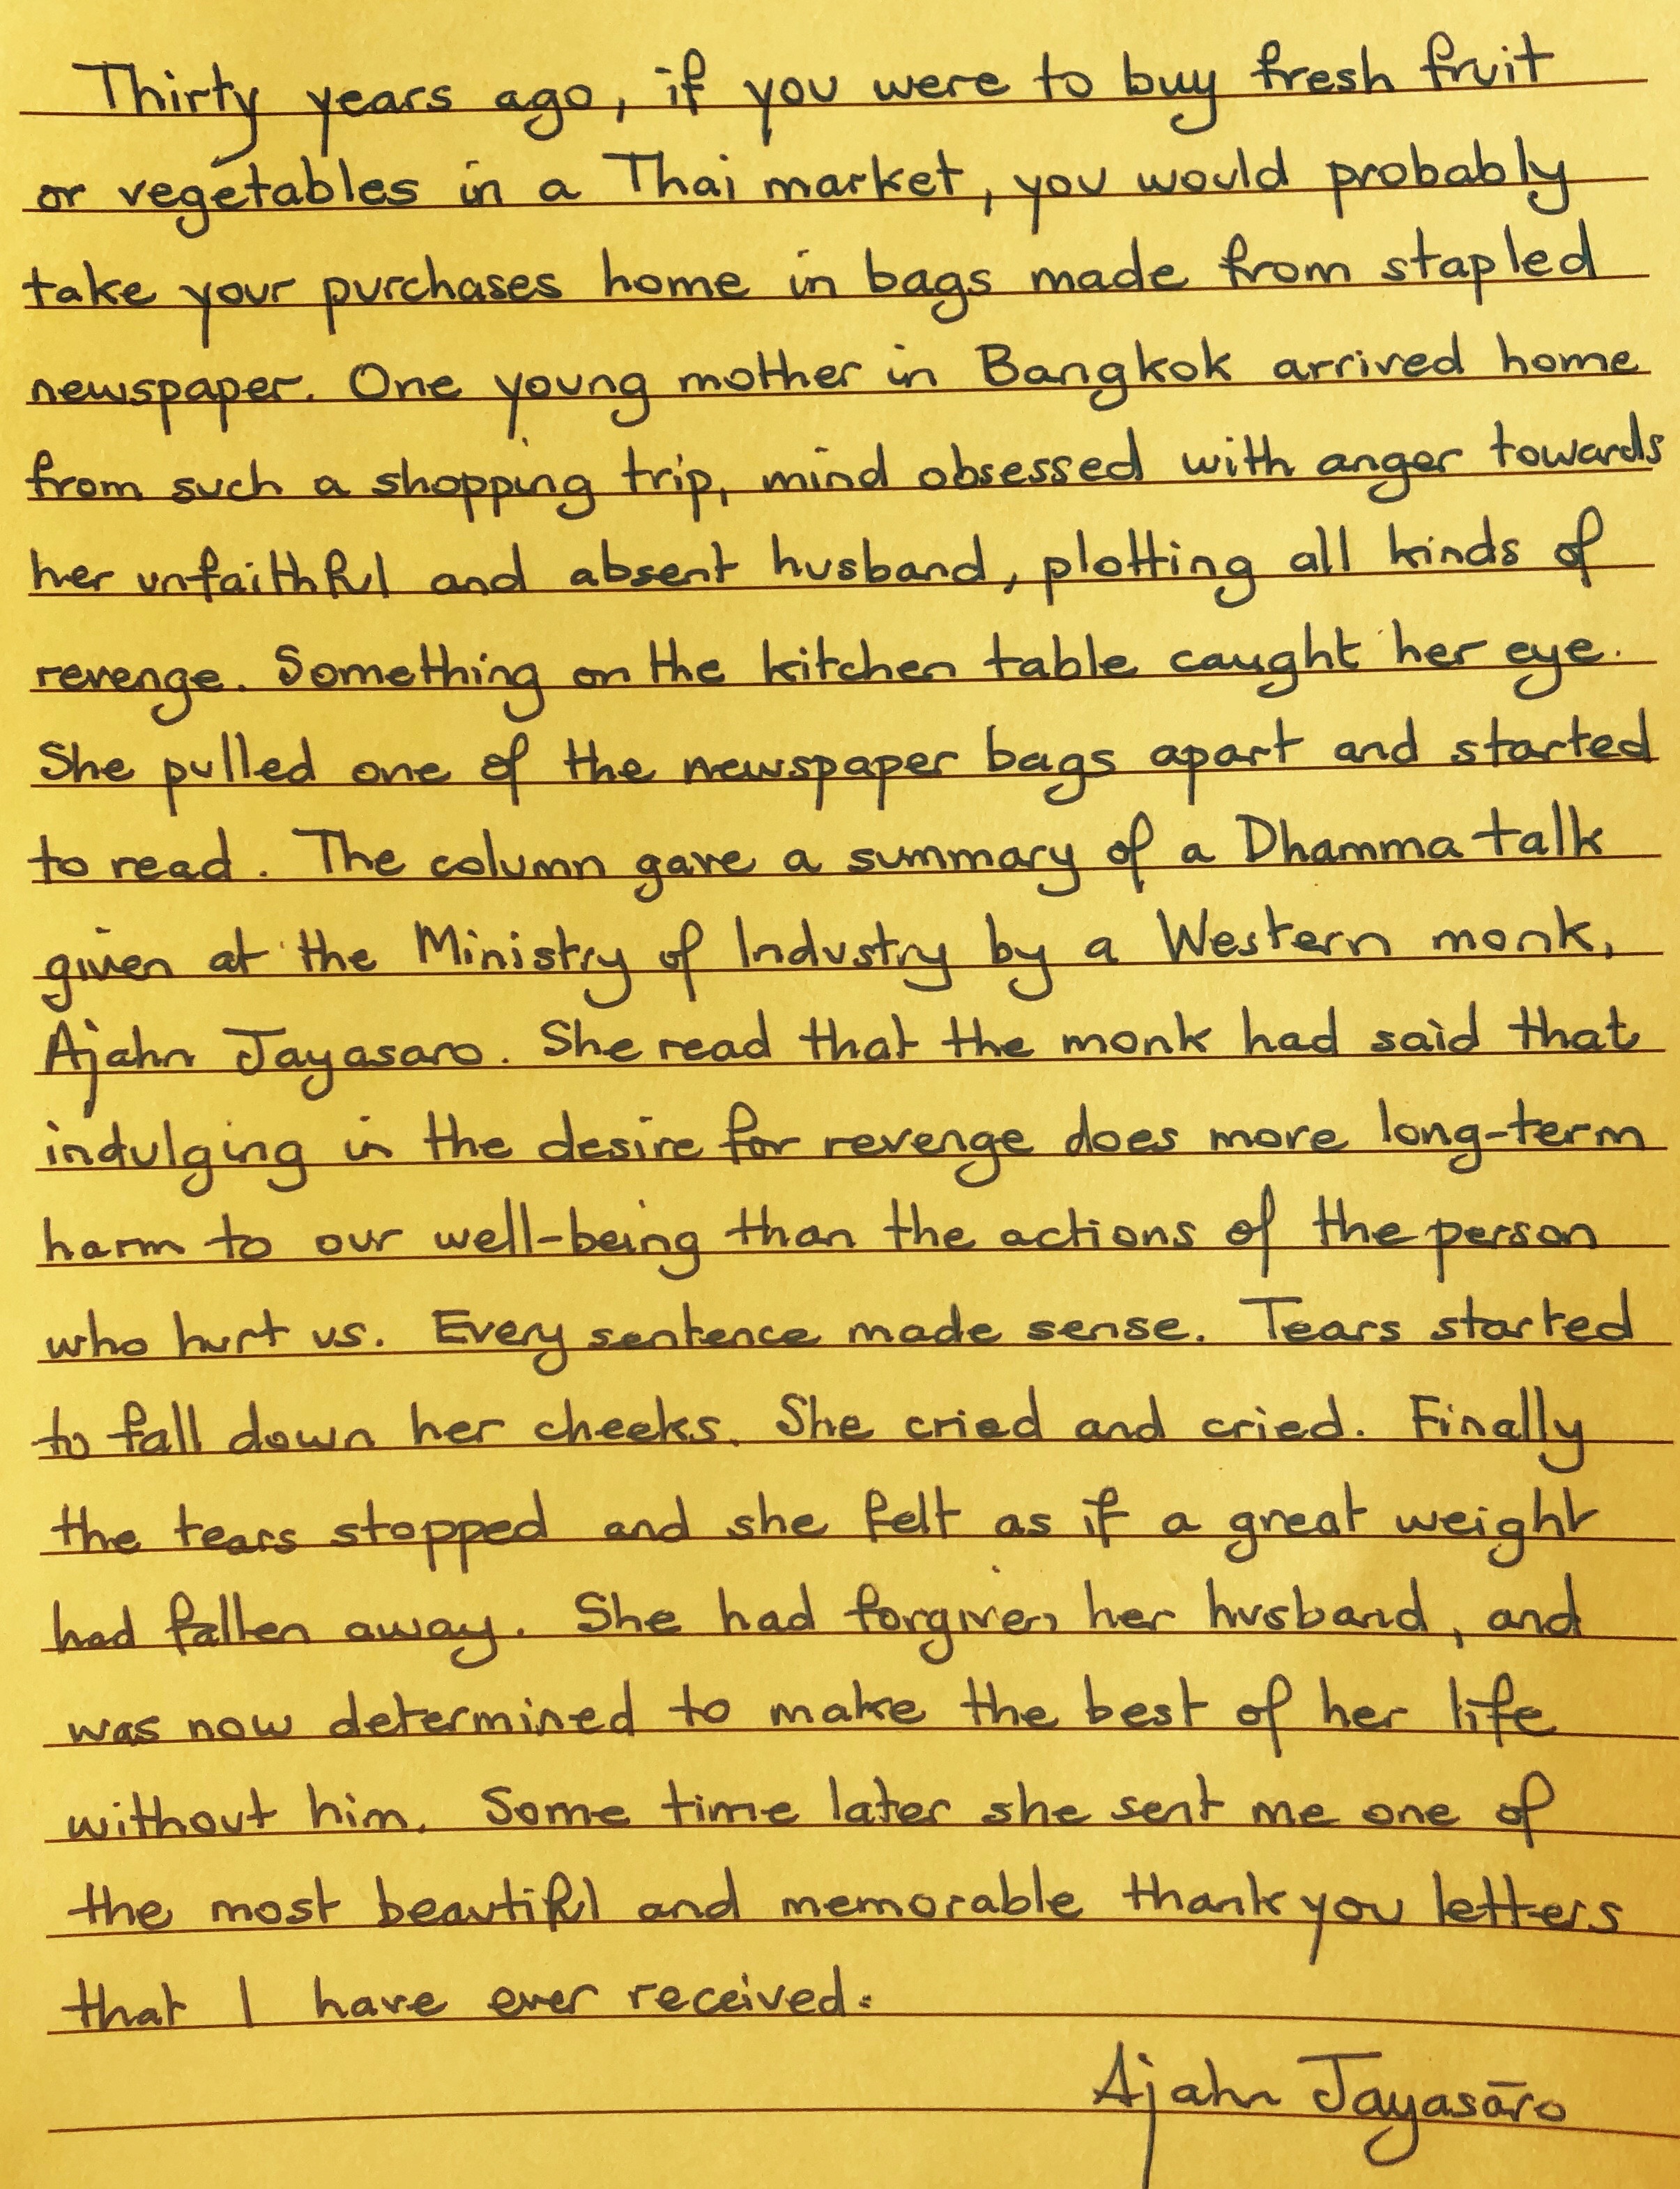 Thirty years ago, if you were to buy fresh fruit
or vegetables in a Thai market, you would probably
take your purchases home in bags made from stapled
newspaper. One young mother in Bangkok arrived home
from such a shopping trip, mind obsessed with anger towards
her unfaithful and absent husband, plotting all kinds of
revenge. Something on the kitchen table caught her eye.
She pulled one of the newspaper bags apart and started
to read. The column gave a summary of a Dhamma talk
given at the Ministry of Industry by a Western monk,
Ajahn Jayasaro. She read that the monk had said that
indulging in the desire for revenge does more long-term
harm to our well-being than the actions of the person
who hurt us. Every sentence made sense. Tears started
to fall down her cheeks. She cried and cried. Finally
the tears stopped and she felt as if a great weight
had fallen away. She had forgiven her husband, and
was now determined to make the best of her life
without him. Some time later she sent me one of
the most beautiful and memorable thank you letters
that I have ever received.
Ajahn Jayasāro